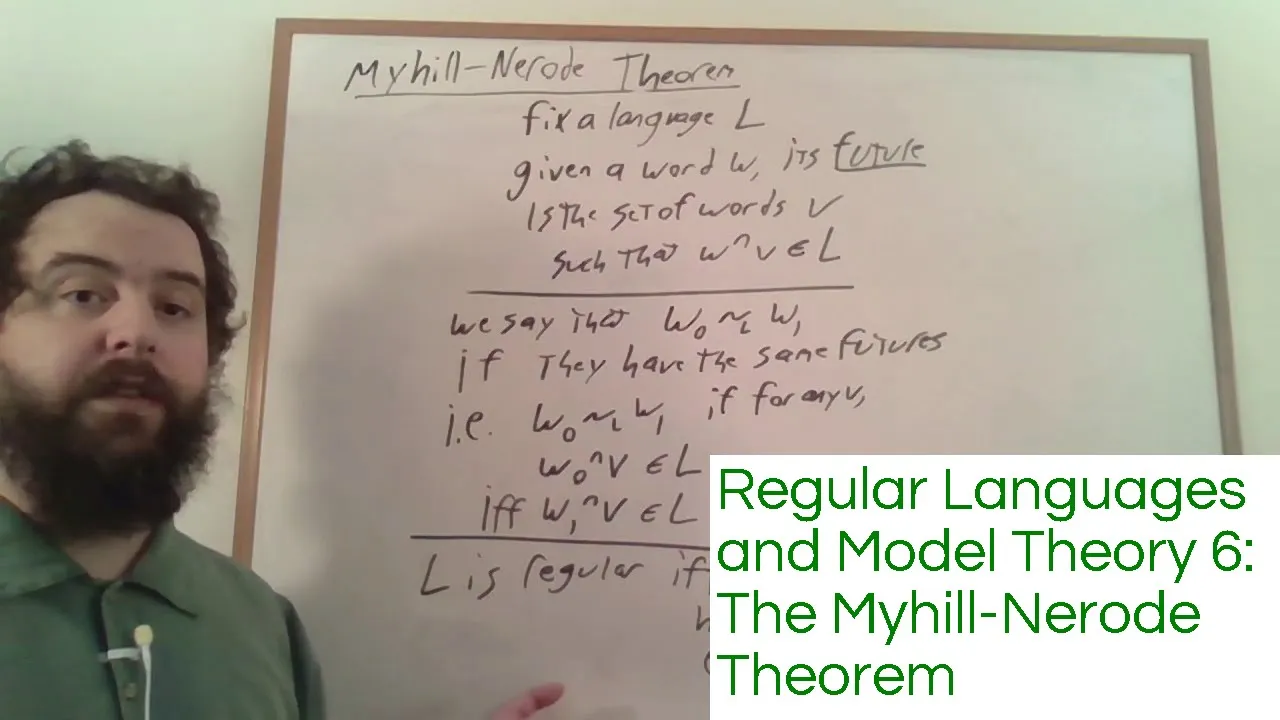 Myhill-Nerode Theorem
fix a language L
given a word w, its future
is the set of words v
such that w^v ∈ L
we say that w₀ ~L w₁
if they have the same futures
i.e. w₀ ~L w₁ if for any v,
w₀^v ∈ L
iff w₁^v ∈ L
L is regular if
Regular Languages
and Model Theory 6:
The Myhill-Nerode
Theorem